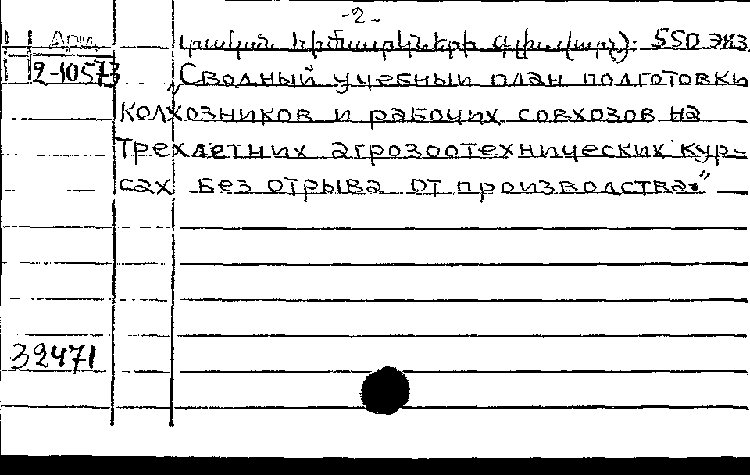 -2-
հիմնարկների գլխավոր): 550 экз.
2-10573
„Сводный учебный план подготовки
колхозников и рабочих совхозов на
трехлетних агрозоотехнических кур-
сах без отрыва от производства."
32471